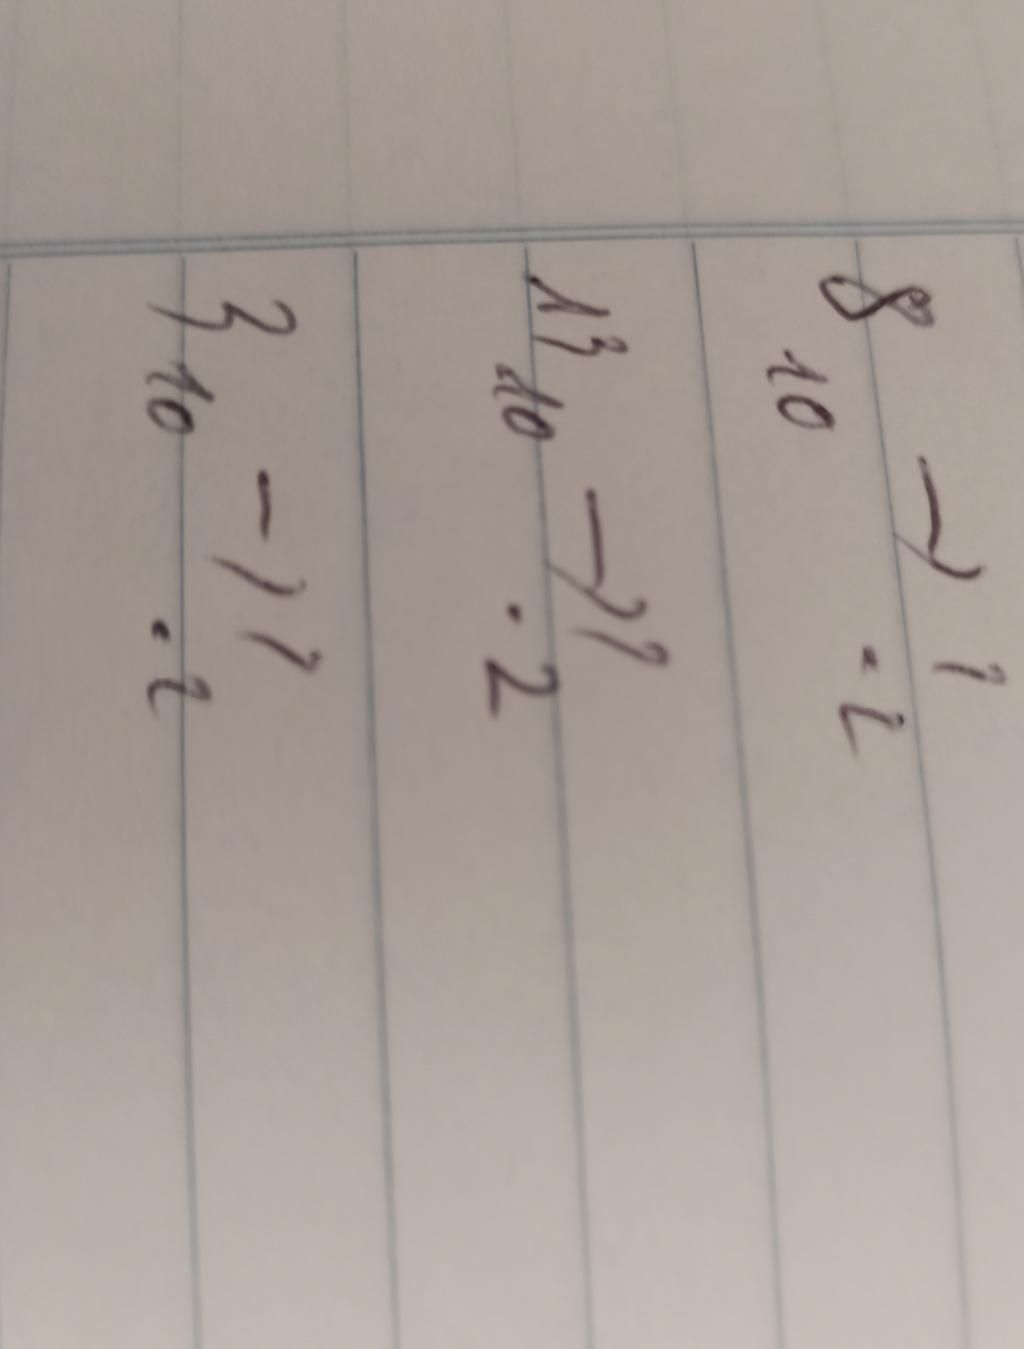 8₁₀ → ?.₂
13₁₀ → ?.₂
3₁₀ → ?.₂